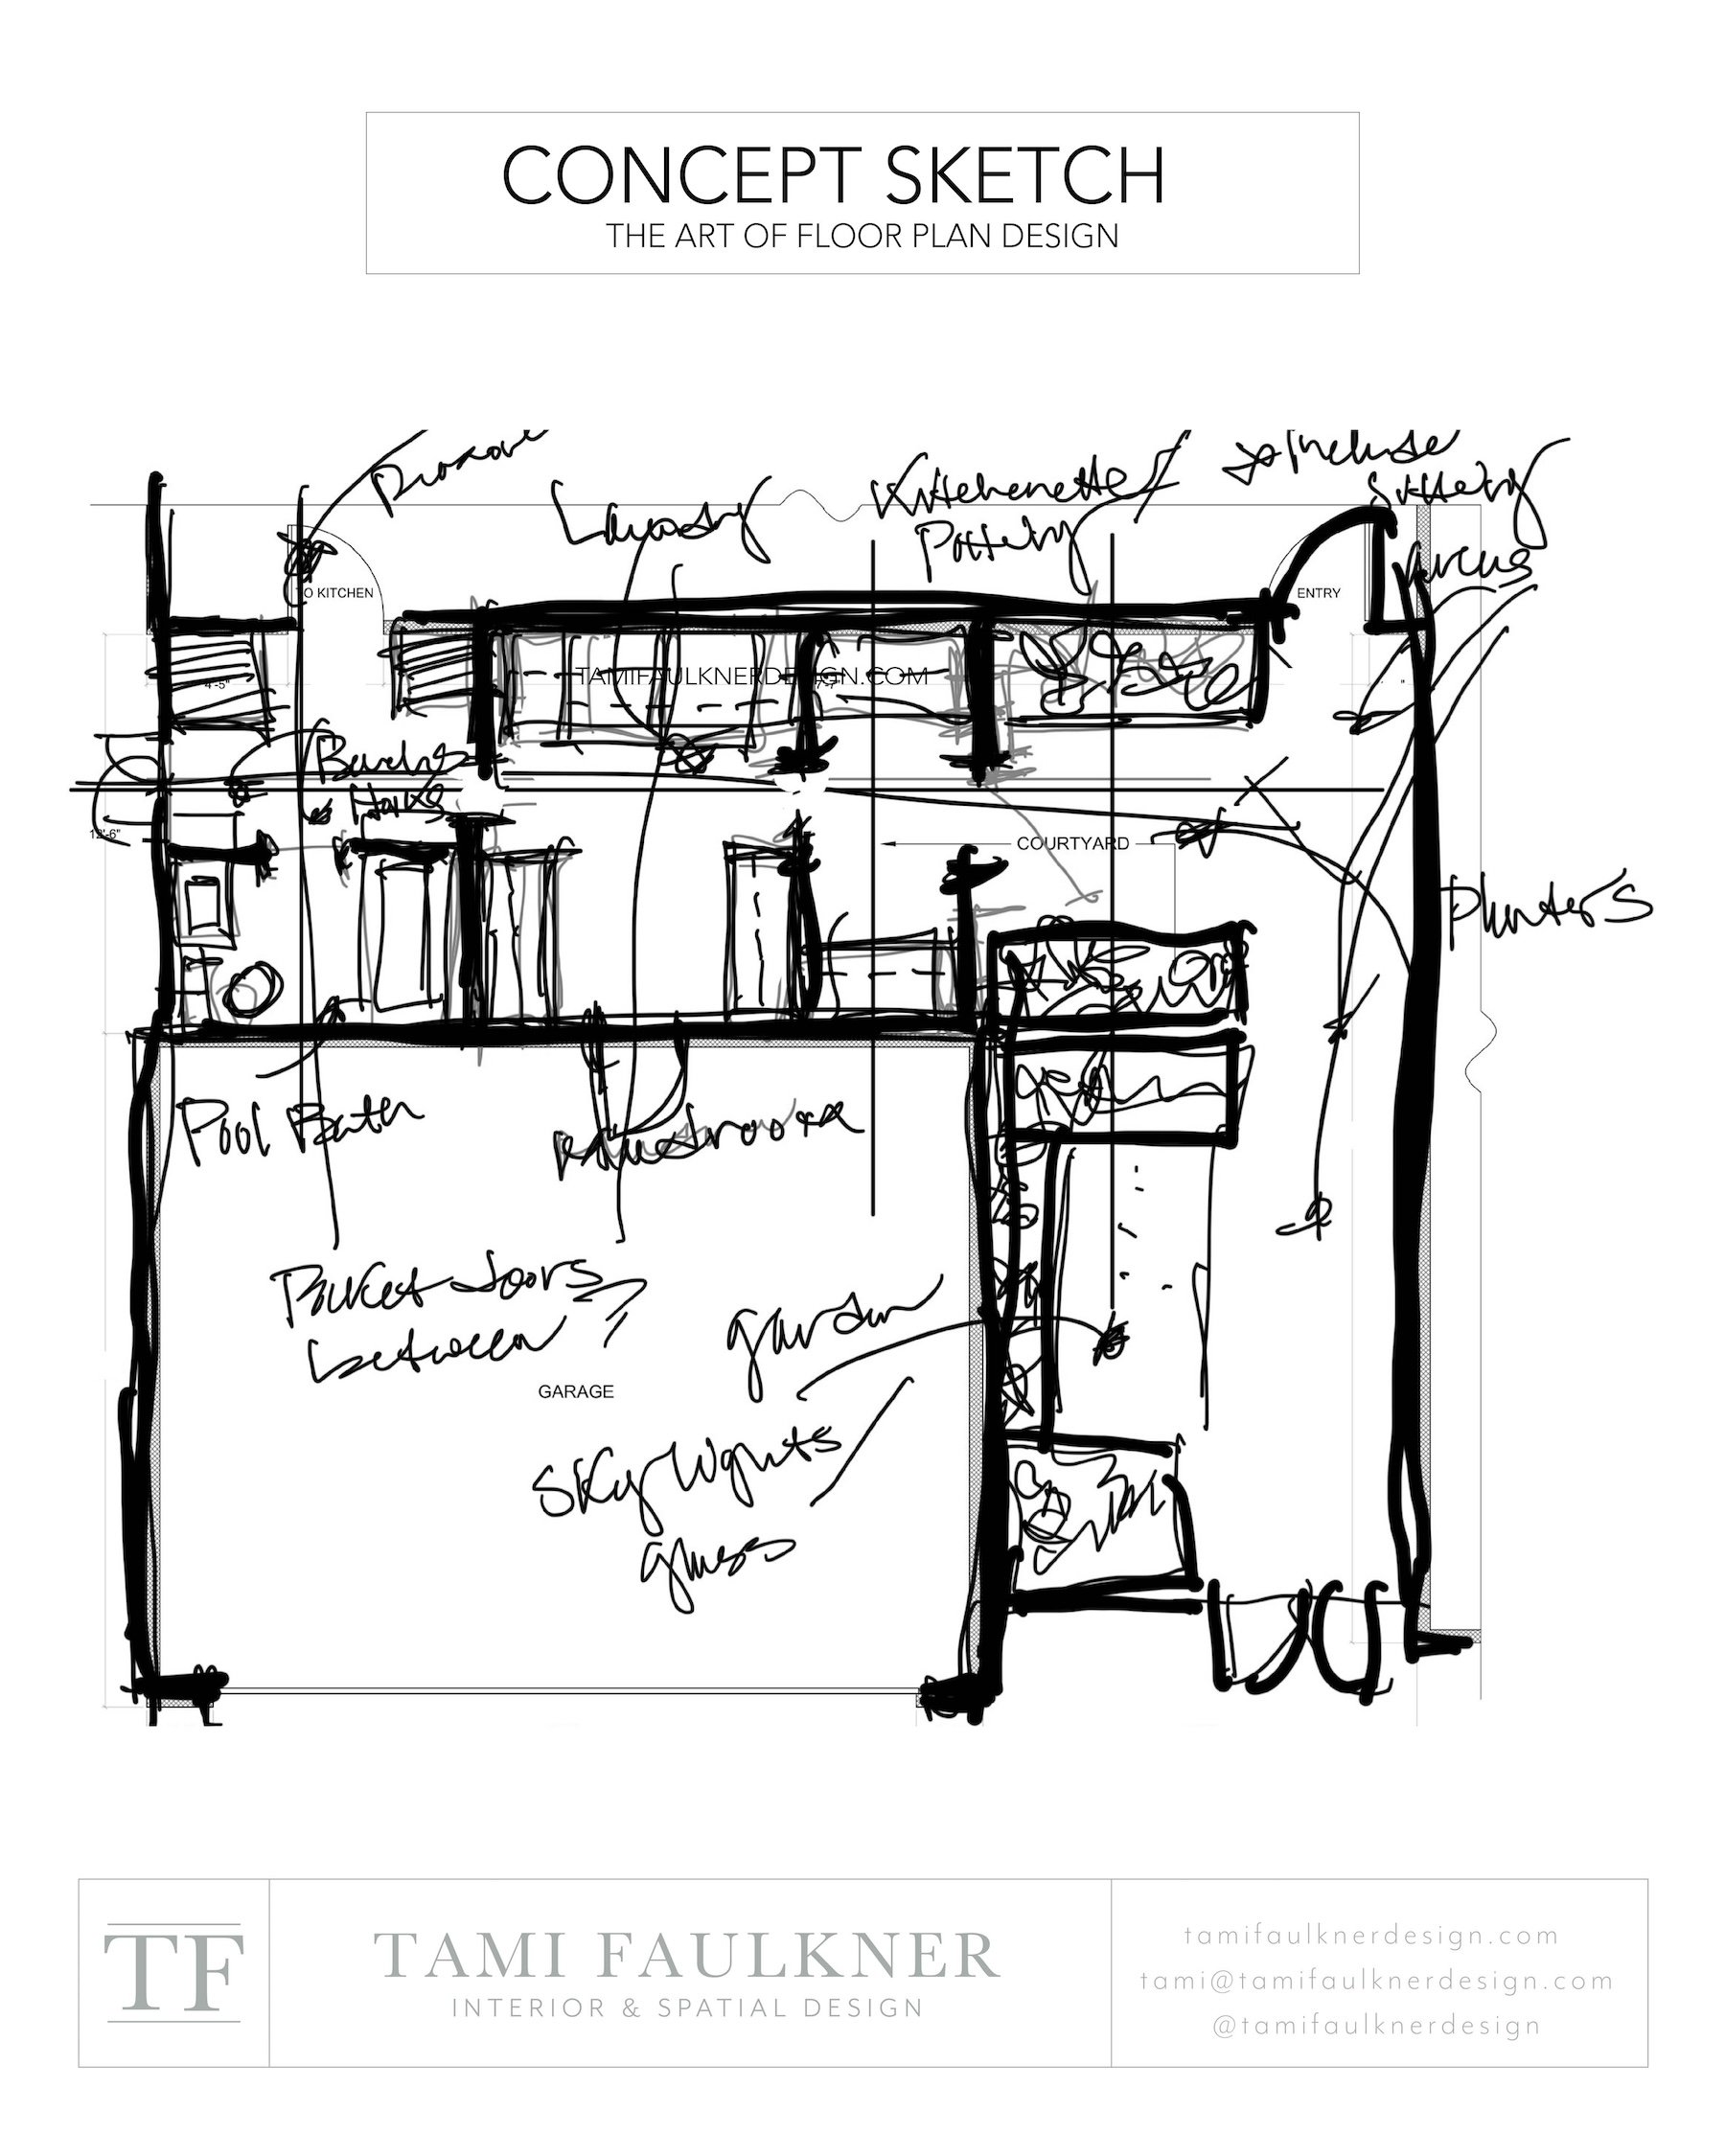 CONCEPT SKETCH
THE ART OF FLOOR PLAN DESIGN
Laundry
Kitchenette/
Pottery
* include
sittery
areas
TO KITCHEN
ENTRY
TAMIFAULKNERDESIGN.COM
4'-5"
Benches
Hooks
12'-6"
COURTYARD
Planters
Pool Bath
Mudroom
Pocket doors
between?
garden
GARAGE
Sky lights
glass
TF
TAMI FAULKNER
INTERIOR & SPATIAL DESIGN
tamifaulknerdesign.com
tami@tamifaulknerdesign.com
@tamifaulknerdesign